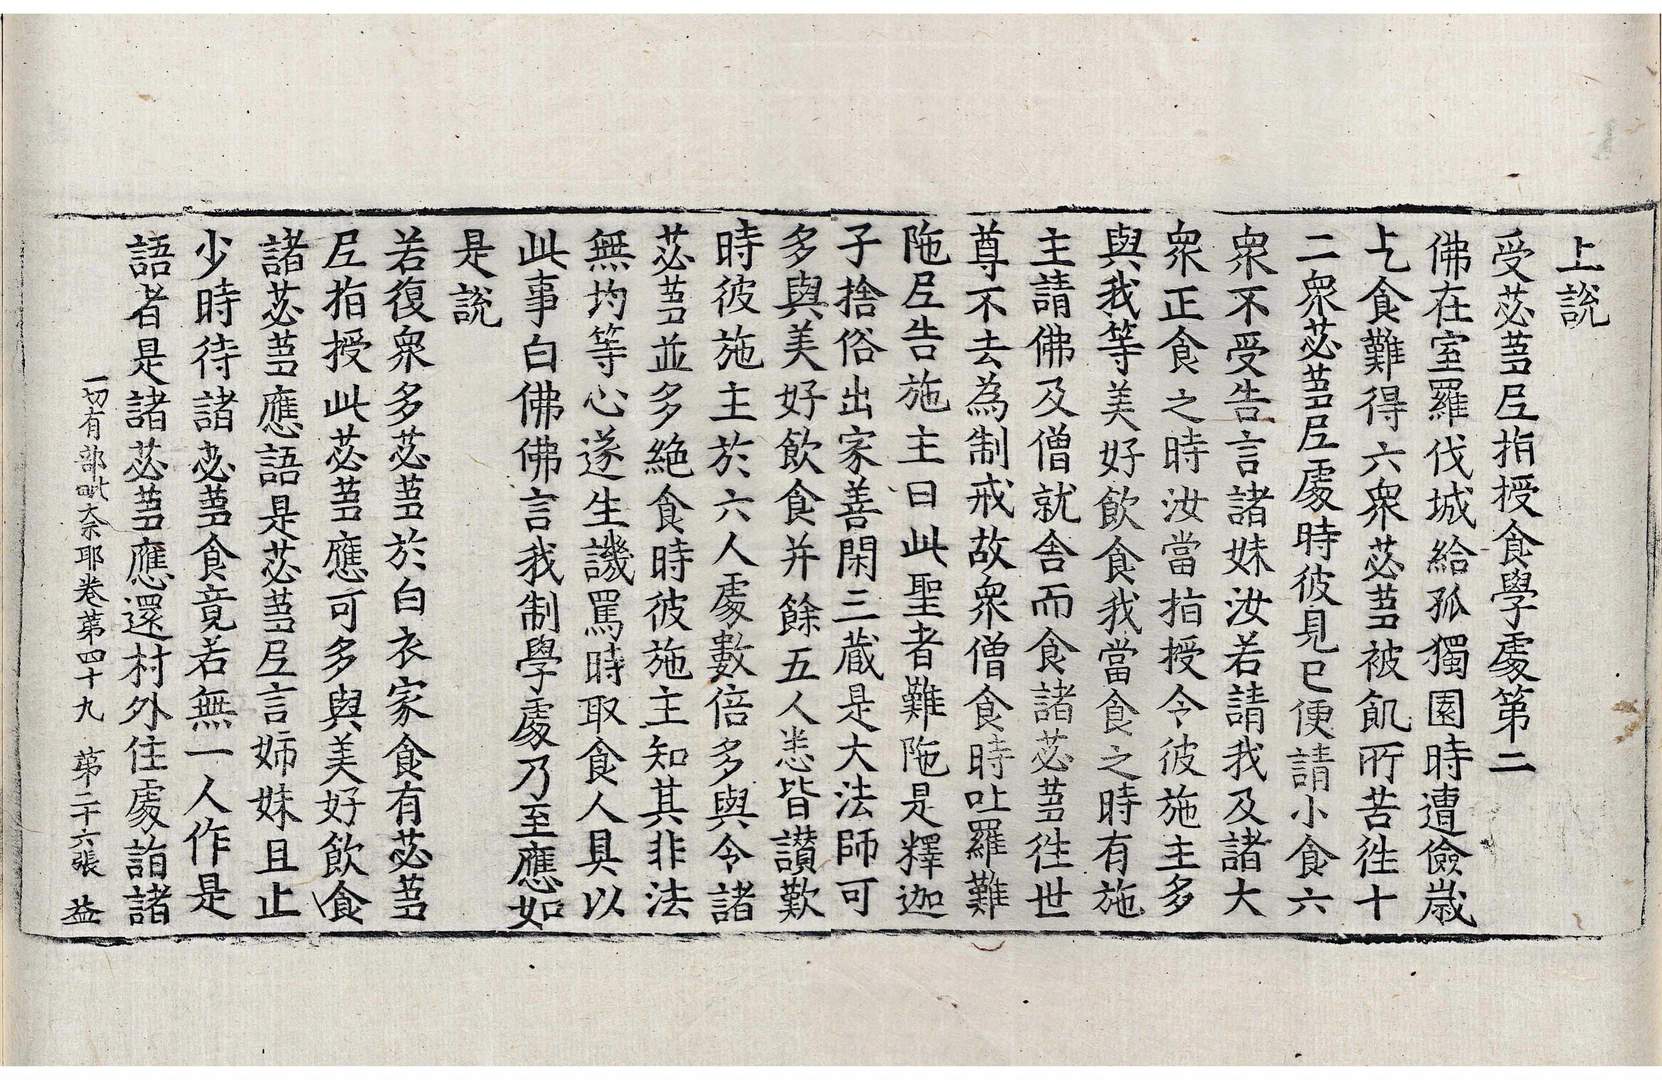 上說
受苾蒭尼指授食學處第二
佛在室羅伐城給孤獨園時遭儉歲
乞食難得六眾苾蒭被飢所苦往十
二眾苾蒭尼處時彼見已便請小食六
眾不受告言諸妹汝若請我及諸大
眾正食之時汝當指授令彼施主多
與我等美好飲食我當食之時有施
主請佛及僧就舍而食諸苾蒭往世
尊不去為制戒故眾僧食時吐羅難
陁尼告施主曰此聖者難陁是釋迦
子捨俗出家善閑三藏是大法師可
多與美好飲食并餘五人悉皆讃歎
時彼施主於六人處數倍多與令諸
苾蒭並多絕食時彼施主知其非法
無均等心遂生譏罵時取食人具以
此事白佛佛言我制學處乃至應如
是說
若復眾多苾蒭於白衣家食有苾蒭
尼指授此苾蒭應可多與美好飲食
諸苾蒭應語是苾蒭尼言姉妹且止
少時待諸苾蒭食竟若無一人作是
語者是諸苾蒭應還村外住處詣諸
一切有部毗奈耶卷第四十九 第二十六張 益